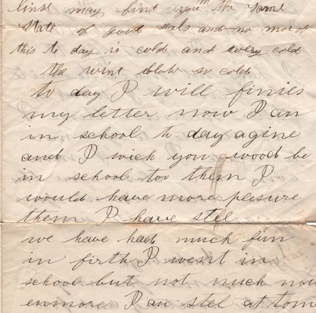 linst may find you the same
state of good and no more
this to day is cold and very cold
the wint blow so cold
to day I will finies
my letter now I am
in school to day agine
and I wich you wood be
in school tov them I
would have more plesure
them I have stel
we have had much fun
in firth I went in
school but not much now
enmore I an stel at tome